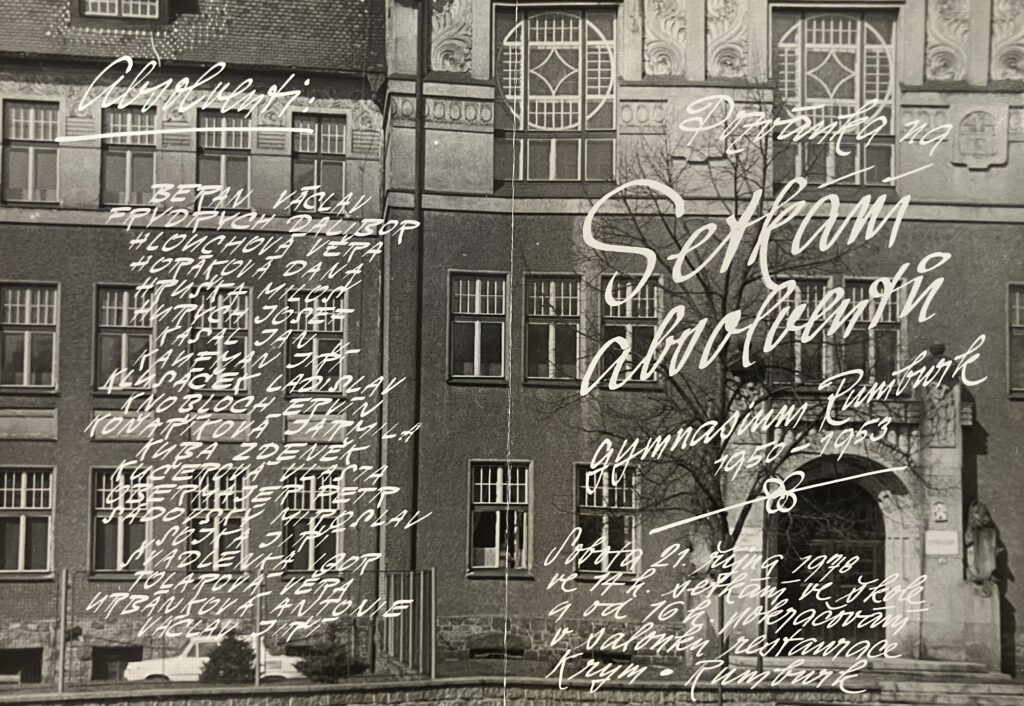 Absolventi:
BERAN VÁCLAV
FRYDRYCH DALIBOR
HLOUCHOVÁ VĚRA
HORÁKOVÁ DANA
HRUŠKA MILOŇ
HUTYCH JOSEF
KASAL JAN
KAUFMAN JIŘÍ
KLUSÁČEK LADISLAV
KNOBLOCH ERVÍN
KONAŘÍKOVÁ JARMILA
KUBA ZDENĚK
KUČEROVÁ VLASTA
OBERMAJER PETR
SADOVSKÝ MIROSLAV
SOJKA JIŘÍ
SVADLENKA IGOR
TOLAROVÁ VĚRA
URBÁNKOVÁ ANTONIE
VÁCLAV JIŘÍ
Pozvánka na
Setkání
absolventů
gymnasium Rumburk
1950 - 1953
Sobota 21. října 1978
ve 14 h. setkání ve škole
a od 16 h. pokračování
v salonku restaurace
Krym • Rumburk